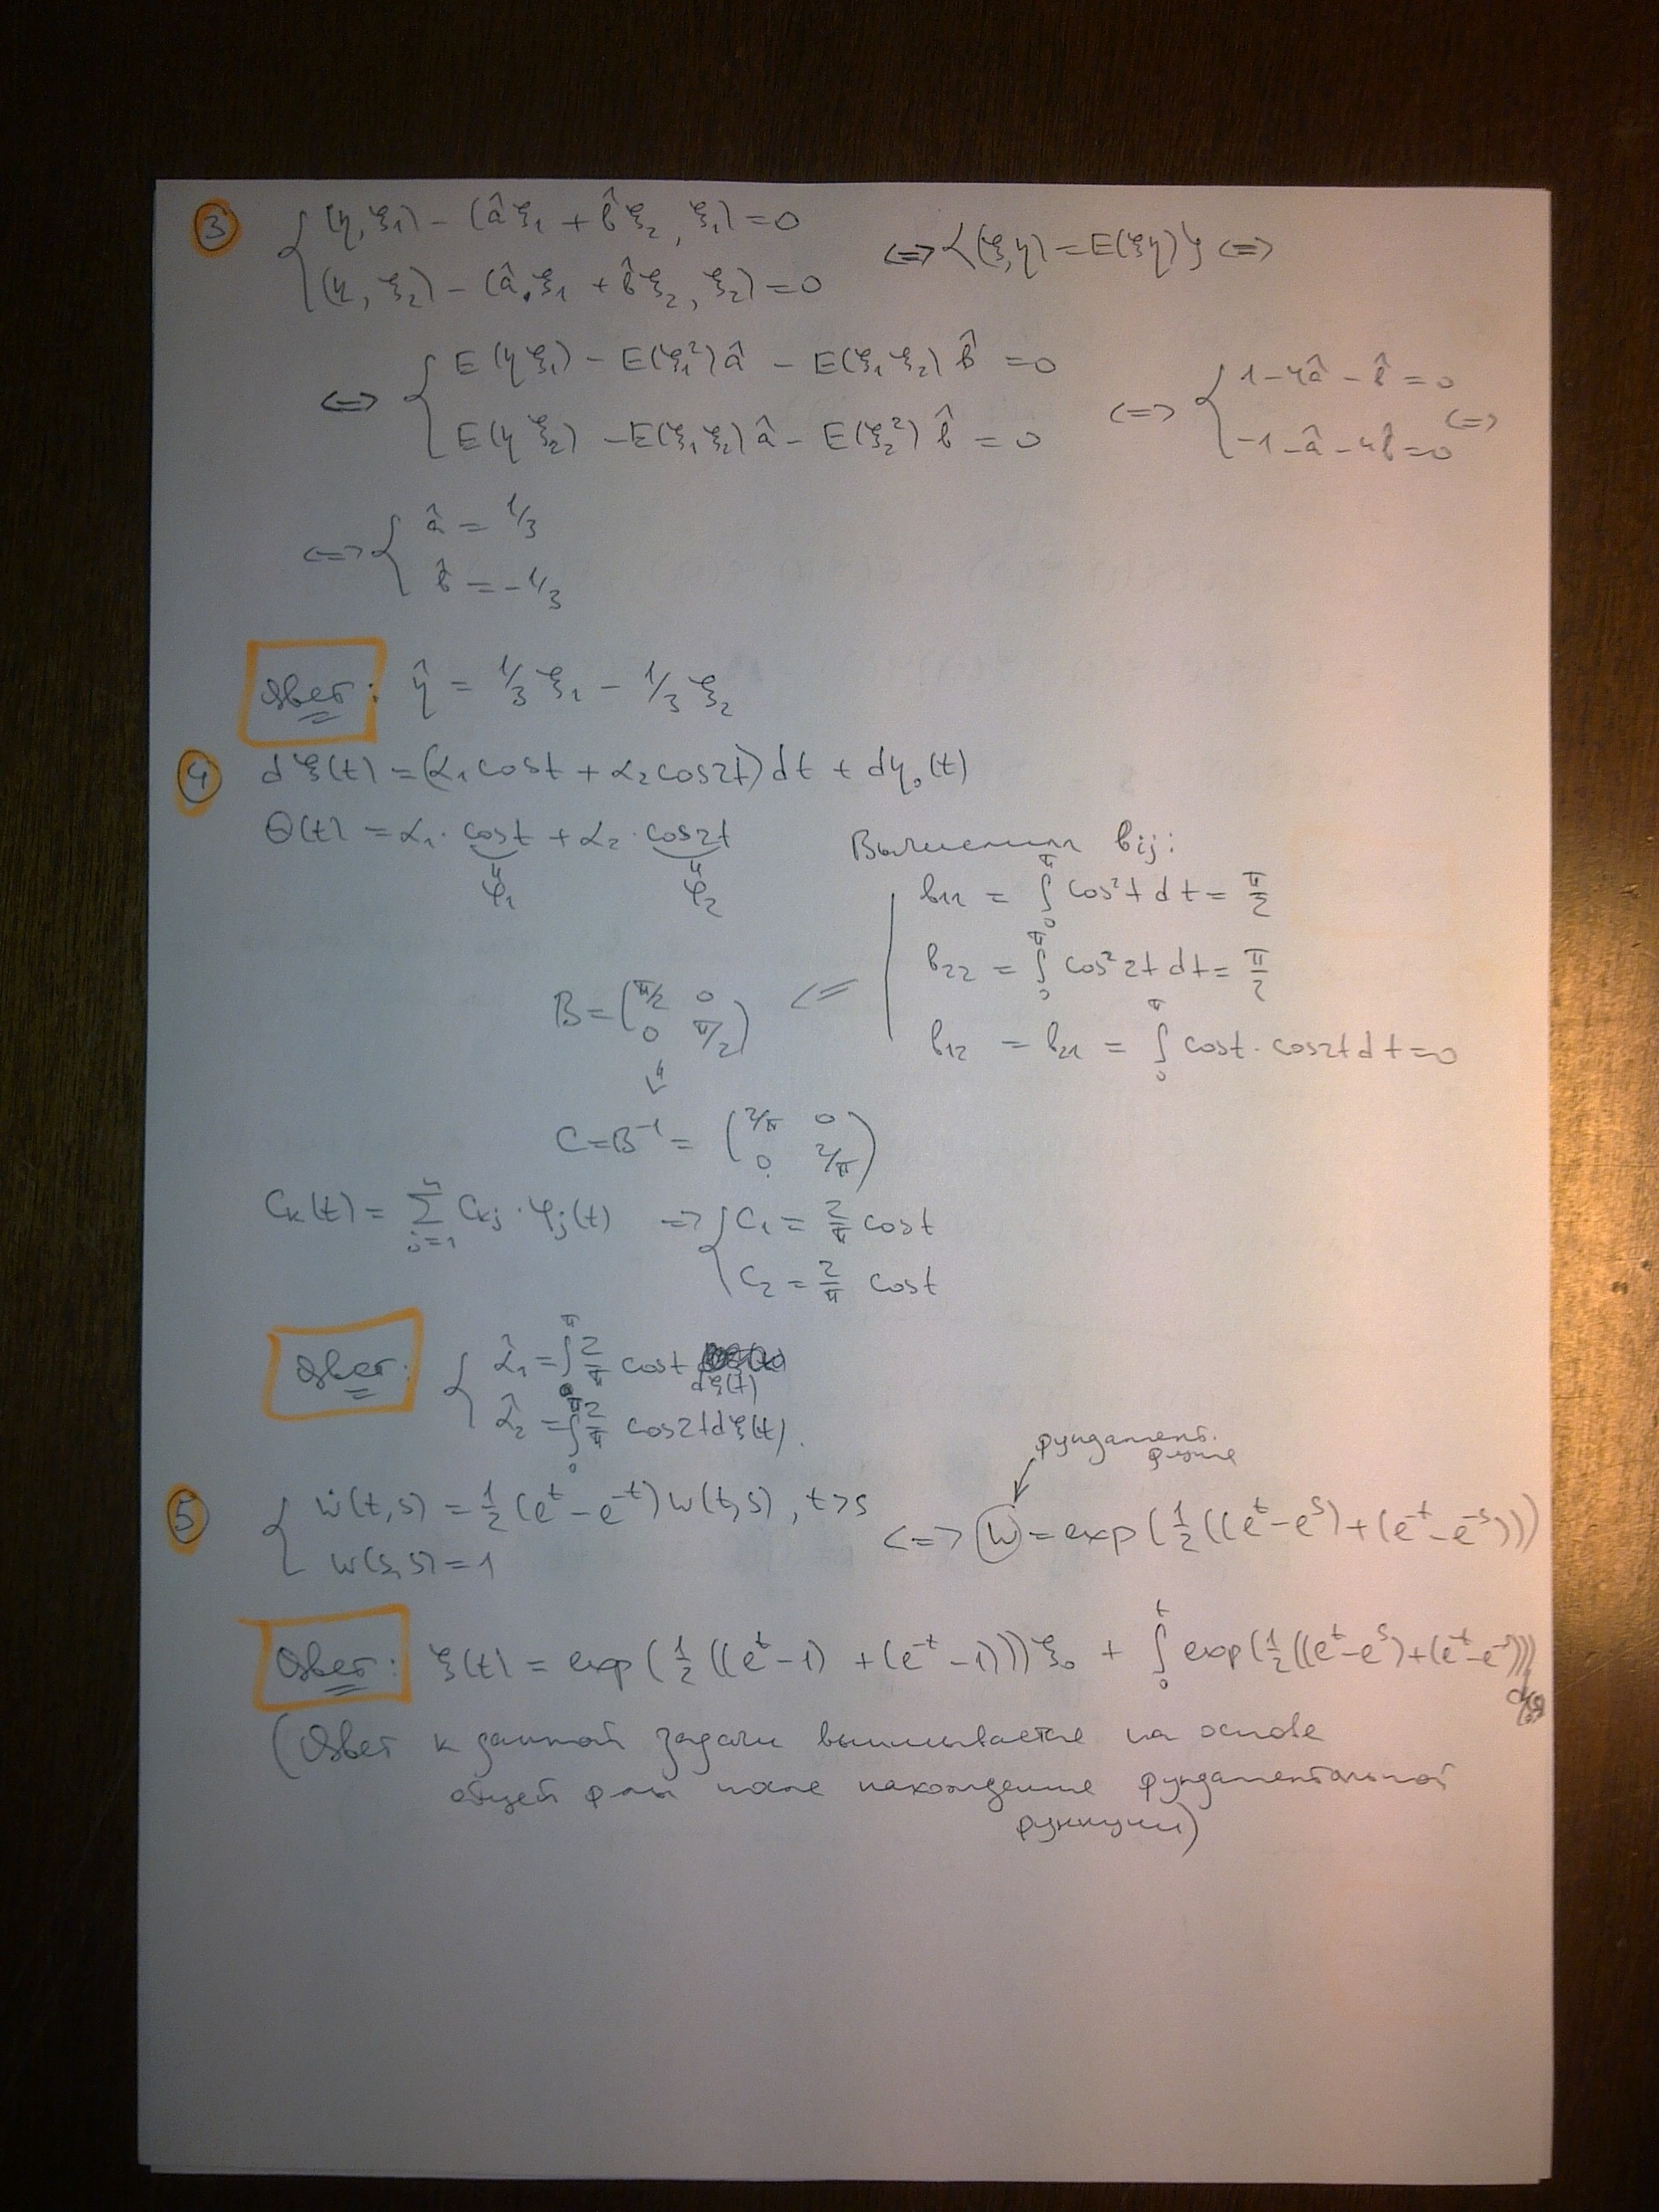 3 { (η, ξ₁) − (âξ₁ + b̂ξ₂, ξ₁) = 0
(η, ξ₂) − (âξ₁ + b̂ξ₂, ξ₂) = 0 <=> {(ξ, η) = E(ξη)} <=>
<=> { E(ηξ₁) − E(ξ₁²)â − E(ξ₁ξ₂)b̂ = 0
E(ηξ₂) − E(ξ₁ξ₂)â − E(ξ₂²)b̂ = 0
<=> { 1 − 4â − b̂ = 0
−1 − â − 4b̂ = 0 <=>
<=> { â = 1/3
b̂ = −1/3
Ответ: η̂ = 1/3 ξ₁ − 1/3 ξ₂
4 dξ(t) = (α₁cost + α₂cos2t)dt + dη₀(t)
Θ(t) = α₁ · cost + α₂ · cos2t
φ₁ φ₂
Вычислим bij:
b₁₁ = ∫₀^π cos²t dt = π/2
b₂₂ = ∫₀^π cos²2t dt = π/2
b₁₂ = b₂₁ = ∫₀^π cost · cos2t dt = 0
B = (π/2 0
0 π/2) <=
C = B⁻¹ = (2/π 0
0 2/π)
Cₖ(t) = Σⁿⱼ₌₁ Cₖⱼ · φⱼ(t) => { C₁ = 2/π cost
C₂ = 2/π cost
Ответ: { α̂₁ = ∫₀^π 2/π cost dξ(t)
α̂₂ = ∫₀^π 2/π cos2t dξ(t).
фундамент.
решение
5 { ẇ(t,s) = 1/2 (eᵗ − e⁻ᵗ) w(t,s), t>s
w(s,s) = 1
<=> w = exp(1/2((eᵗ − eˢ) + (e⁻ᵗ − e⁻ˢ)))
Ответ: ξ(t) = exp(1/2((eᵗ − 1) + (e⁻ᵗ − 1)))ξ₀ + ∫₀ᵗ exp(1/2((eᵗ − eˢ) + (e⁻ᵗ − e⁻ˢ)))
(Ответ к данной задачи выписывается на основе
общей ф-лы после нахождение фундаментальной
функции)